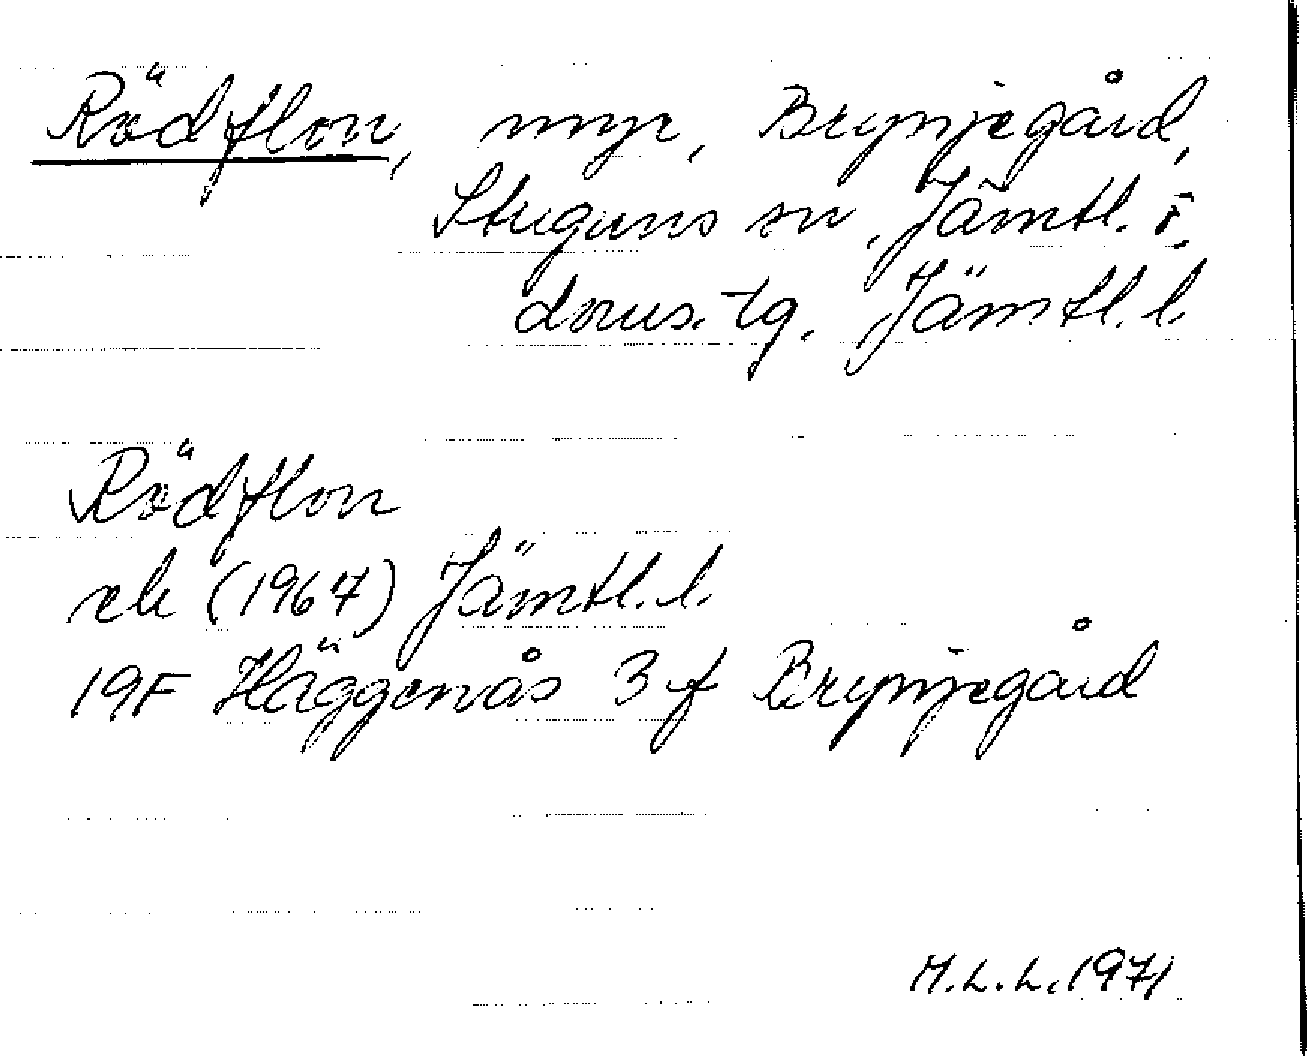 Rödflon, myr, Brynjegård,
Stuguns sn, Jämtl. ö.
doms. tg. Jämtl. l.
Rödflon
ek (1967) Jämtl. l.
19F Häggenås 3 f Brynjegård
M.L.L. 1971